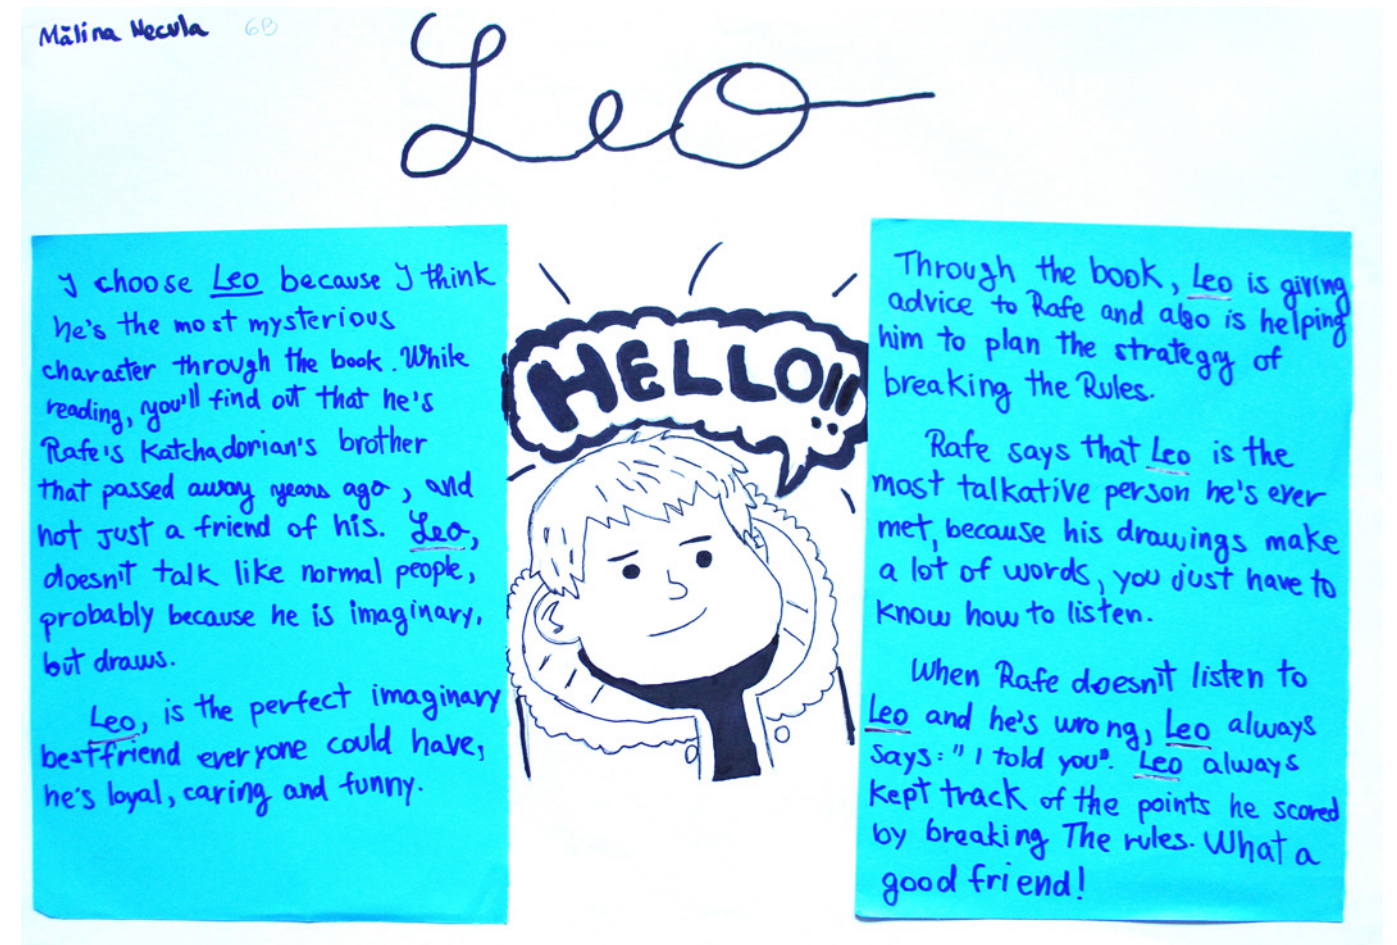 Mălina Necula 6B
Leo
I choose Leo because I think
he's the most mysterious
character through the book. While
reading, you'll find out that he's
Rafe's Katchadorian's brother
that passed away years ago, and
not just a friend of his. Leo,
doesn't talk like normal people,
probably because he is imaginary,
but draws.
Leo, is the perfect imaginary
bestfriend everyone could have,
he's loyal, caring and funny.
HELLO!!
Through the book, Leo is giving
advice to Rafe and also is helping
him to plan the strategy of
breaking the Rules.
Rafe says that Leo is the
most talkative person he's ever
met, because his drawings make
a lot of words, you just have to
know how to listen.
When Rafe doesn't listen to
Leo and he's wrong, Leo always
says: "I told you". Leo always
kept track of the points he scored
by breaking The rules. What a
good friend!